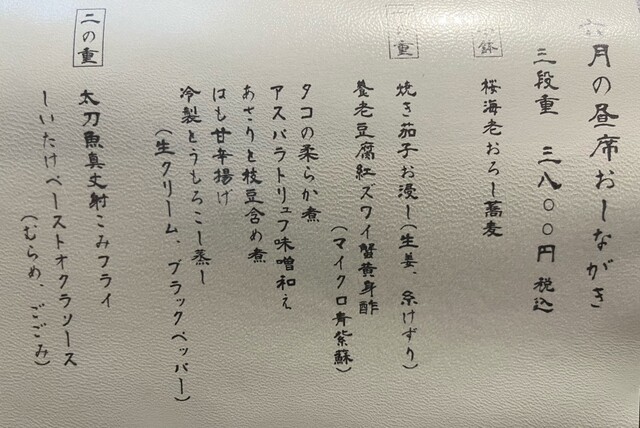 六月の昼席おしながき
三段重 三八〇〇円 税込
鉢
桜海老おろし蕎麦
重
焼き茄子お浸し(生姜、糸けずり)
養老豆腐紅ズワイ蟹黄身酢
(マイクロ青紫蘇)
タコの柔らか煮
アスパラトリュフ味噌和え
あさりと枝豆含め煮
はも甘辛揚げ
冷製とうもろこし蒸し
(生クリーム、ブラックペッパー)
二の重
太刀魚真丈射こみフライ
しいたけペーストオクラソース
(むらめ、ごごみ)